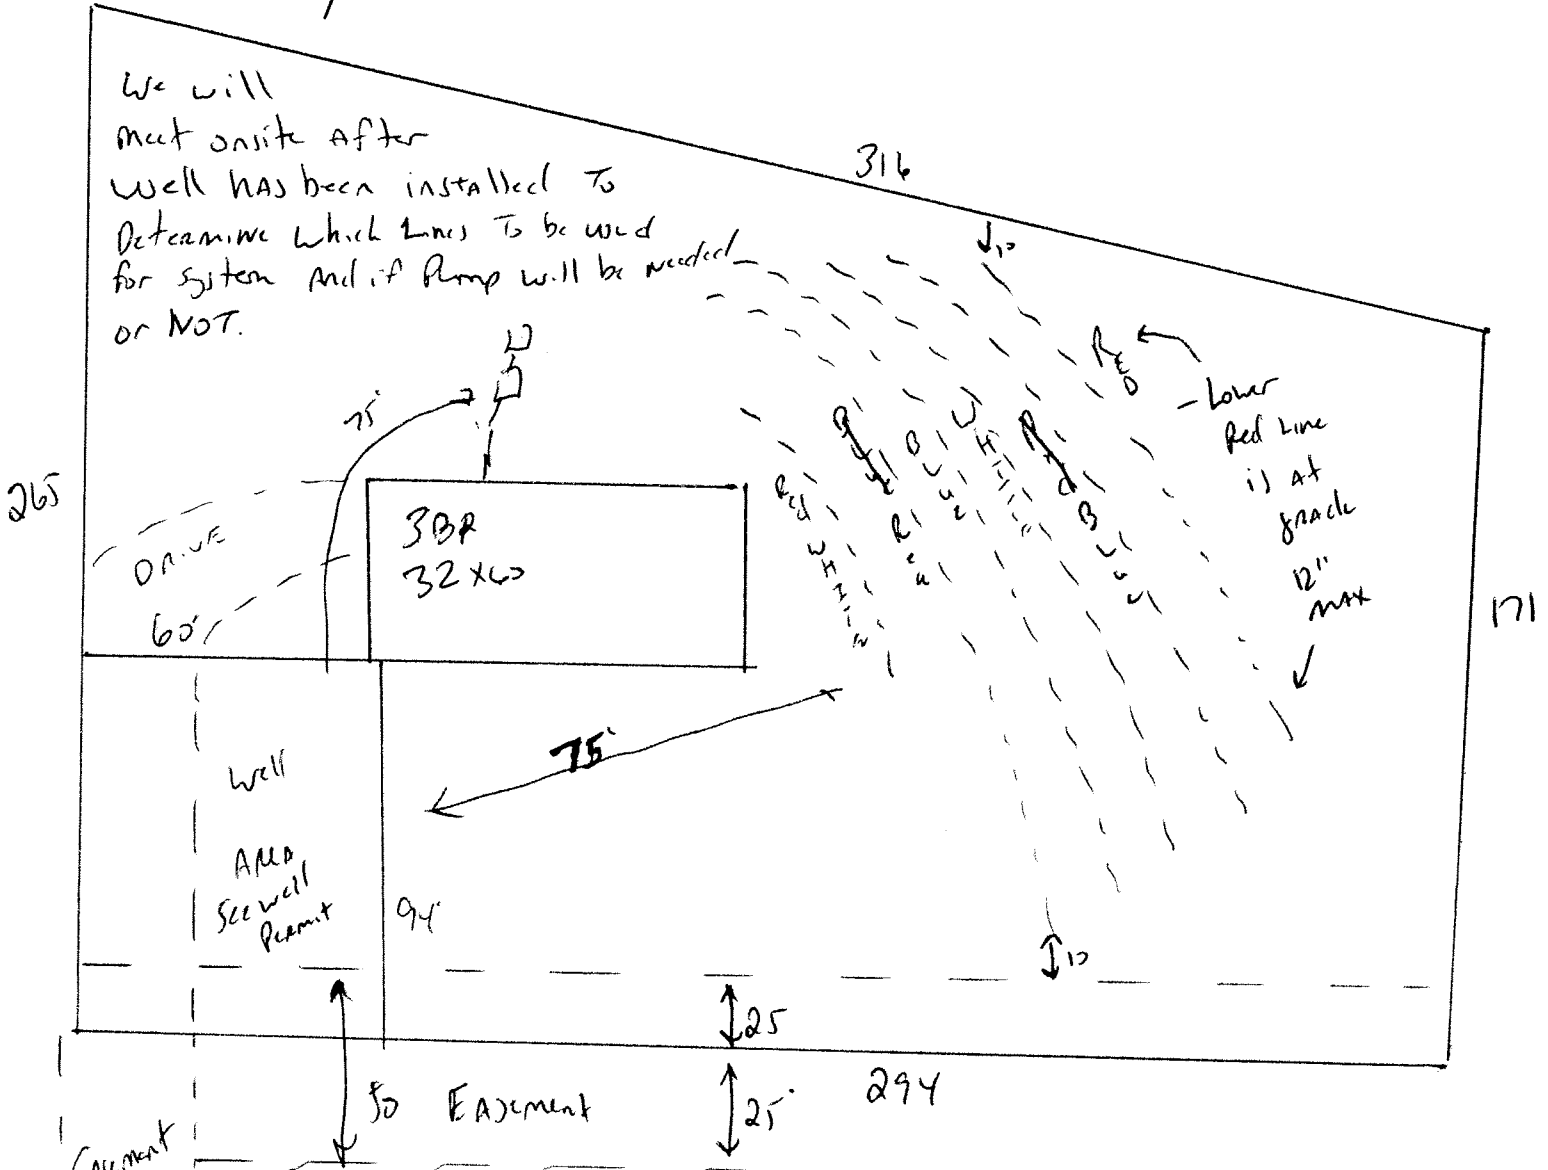 We will
meet onsite After
well hAs been instAlled To
Determine which Lines To be used
for system And if Pump will be needed
or NOT.
316
10
RED
- Lower
Red Line
is At
grAde
12"
mAx
75'
265
DRIVE
60'
3BR
32x60
Red
WHITE
Blue
Red
Blue
WHITE
Red
Blue
171
75'
Well
AreA
See well
Permit
94'
10
25
50 EAsement
25'
294
Easement